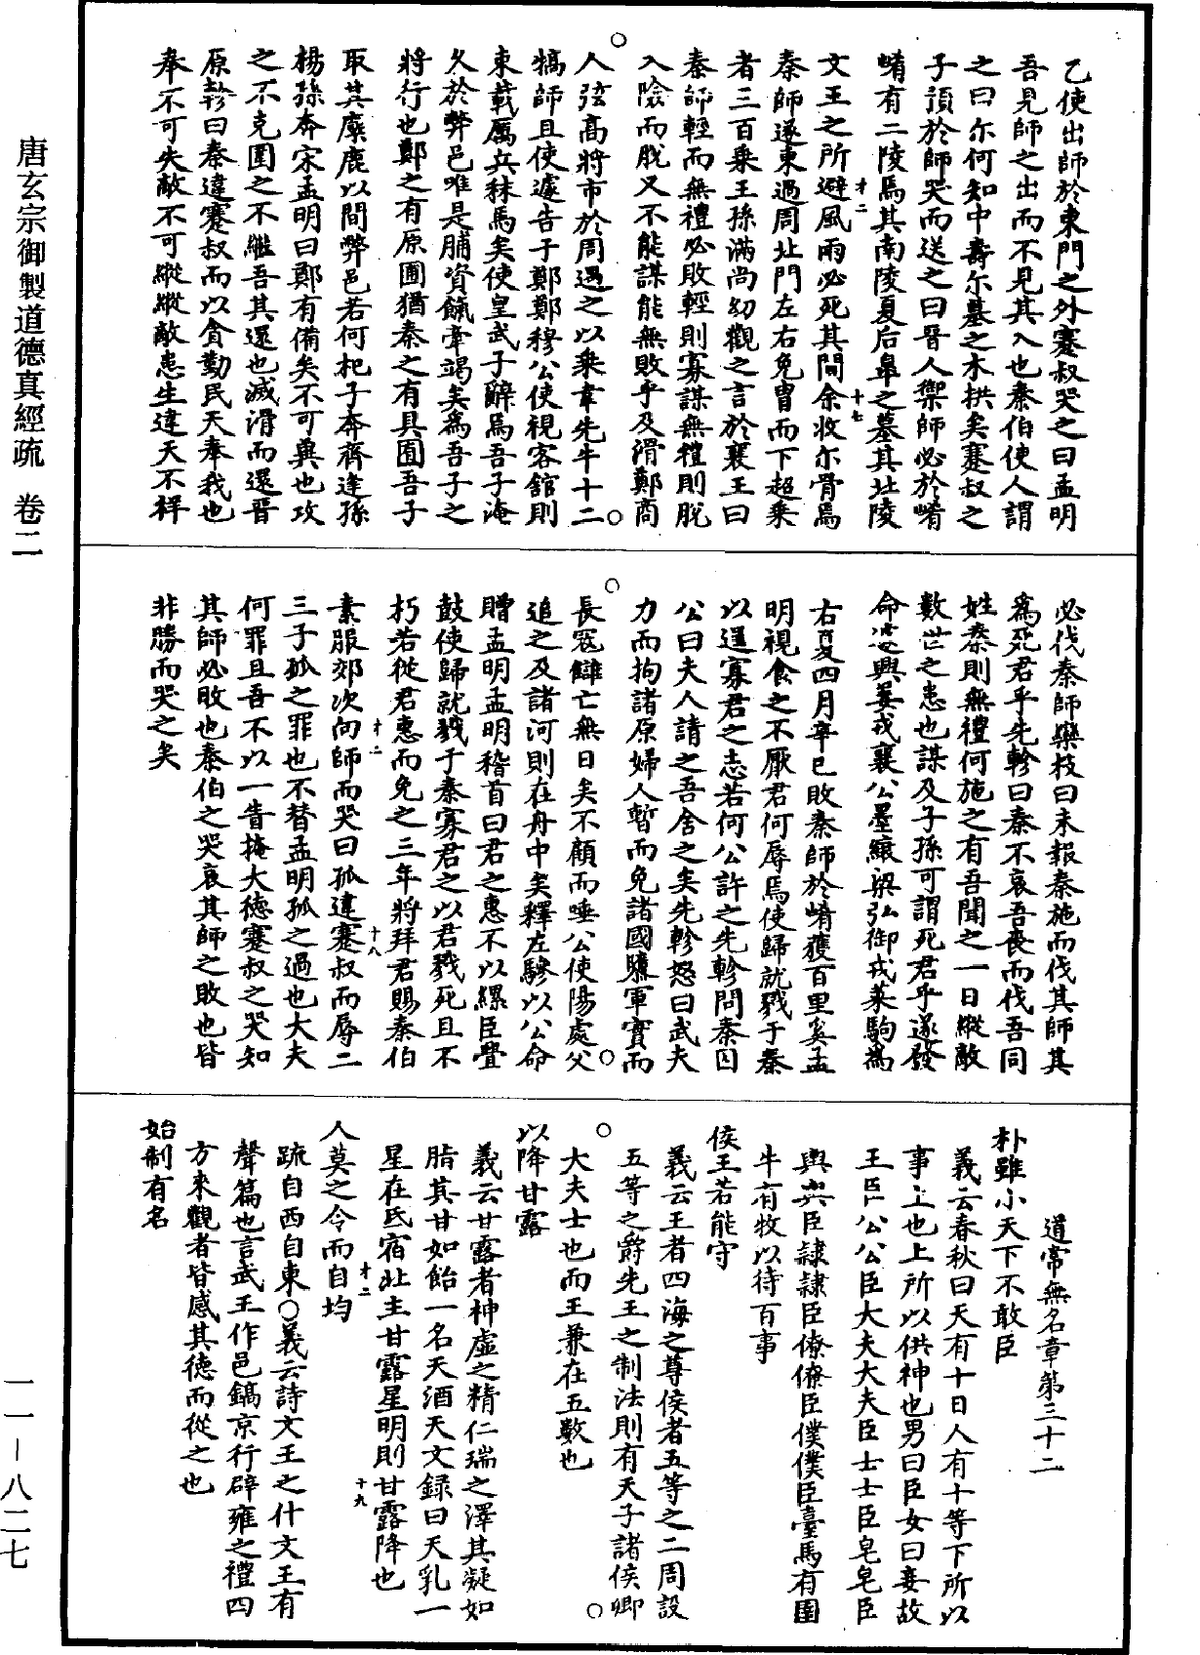 乙使出師於東門之外蹇叔哭之曰孟明
吾見師之出而不見其入也秦伯使人謂
之曰尔何知中壽尔墓之木拱矣蹇叔之
子預於師哭而送之曰晉人禦師必於崤
崤有二陵焉其南陵夏后臯之墓其北陵
才二
十七
文王之所避風雨必死其間余收尔骨焉
秦師遂東過周北門左右免胄而下超乗
者三百乗王孫滿尚幼觀之言於襄王曰
秦師輕而無禮必敗輕則寡謀無禮則脱
入險而脱又不能謀能無敗乎及滑鄭商
人弦高將市於周遇之以乗韋先牛十二
犒師且使遽告于鄭鄭穆公使視客館則
束載厲兵秣馬矣使皇武子辭焉吾子淹
久於弊邑唯是脯資餼牽竭矣為吾子之
將行也鄭之有原圃猶秦之有具囿吾子
取其麋鹿以間弊邑若何杞子奔齊逢孫
楊孫奔宋孟明曰鄭有備矣不可冀也攻
之不克圍之不繼吾其還也滅滑而還晉
原軫曰秦違蹇叔而以貪勤民天奉我也
奉不可失敵不可縱縱敵患生違天不祥
必伐秦師欒枝曰未報秦施而伐其師其
為死君乎先軫曰秦不哀吾喪而伐吾同
姓秦則無禮何施之有吾聞之一日縱敵
數世之患也謀及子孫可謂死君乎遂發
命遽興姜戎襄公墨縗梁弘御戎萊駒為
右夏四月辛巳敗秦師於崤獲百里奚孟
明視食之不厭君何辱焉使歸就戮于秦
以逞寡君之志若何公許之先軫問秦囚
公曰夫人請之吾舍之矣先軫怒曰武夫
力而拘諸原婦人暫而免諸國隳軍實而
長寇讎亡無日矣不顧而唾公使陽處父
追之及諸河則在舟中矣釋左驂以公命
贈孟明孟明稽首曰君之惠不以纍臣釁
鼓使歸就戮于秦寡君之以君戮死且不
朽若從君惠而免之三年將拜君賜秦伯
才二
十八
素服郊次向師而哭曰孤違蹇叔而辱二
三子孤之罪也不替孟明孤之過也大夫
何罪且吾不以一眚掩大德蹇叔之哭知
其師必敗也秦伯之哭哀其師之敗也皆
非勝而哭之矣
道常無名章第三十二
朴雖小天下不敢臣
義云春秋曰天有十日人有十等下所以
事上也上所以供神也男曰臣女曰妾故
王臣公公臣大夫大夫臣士士臣皂皂臣
輿輿臣隷隷臣僚僚臣僕僕臣臺馬有圉
牛有牧以待百事
侯王若能守
義云王者四海之尊侯者五等之二周設
五等之爵先王之制法則有天子諸侯卿
大夫士也而王兼在五數也
以降甘露
義云甘露者神虛之精仁瑞之澤其凝如
脂其甘如飴一名天酒天文録曰天乳一
星在氐宿北主甘露星明則甘露降也
才二
十九
人莫之令而自均
疏自西自東○義云詩文王之什文王有
聲篇也言武王作邑鎬京行辟雍之禮四
方來觀者皆感其德而從之也
始制有名
唐玄宗御製道德真經疏　卷二
一一－八二七